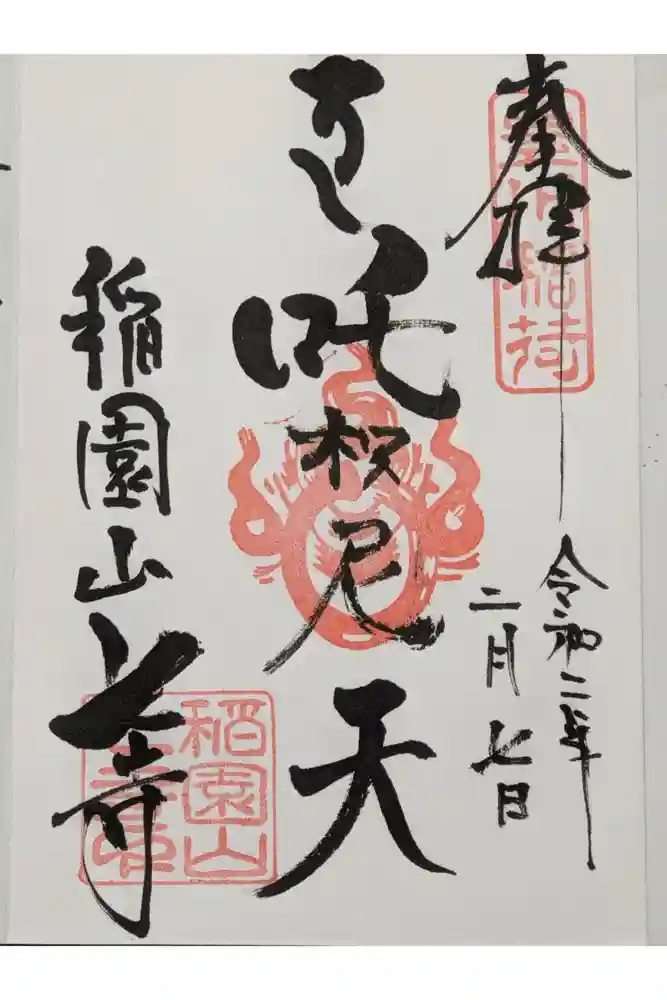 奉拝
稲荷
令和二年
二月七日
吒枳尼天
稲園山七寺
稲園山